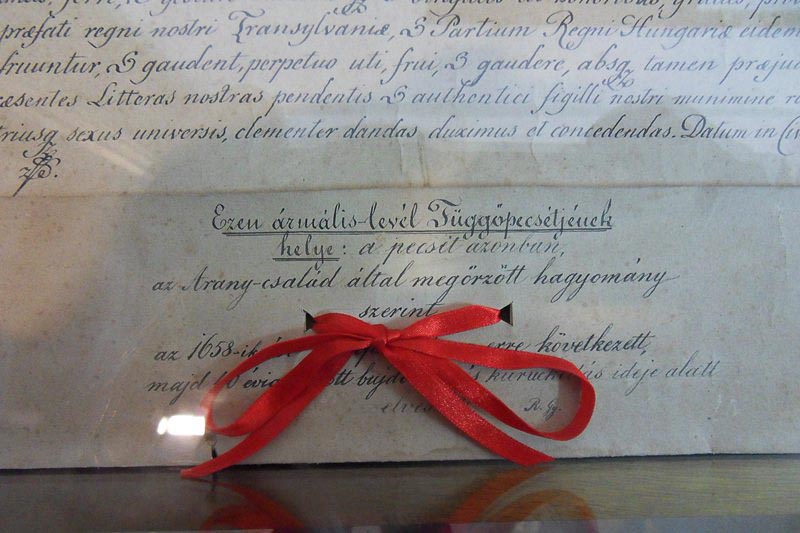 præfati regni nostri Transylvaniæ, S Partium Regni Hungariæ eidem
fruuntur, S gaudent, perpetuo uti, frui, S gaudere, absq tamen præju
esentes Litteras nostras pendentis S authentici sigilli nostri munimine
triusq sexus universis, clementer dandas duximus et concedendas. Datum in
Ezen ármális-levél Függőpecsétjének
helye: a pecsét azonban,
az Arany-család által megőrzött hagyomány
szerint
az 1658-ik erre következett,
majd bujd kuruczkodás ideje alatt
elves R. Gy.